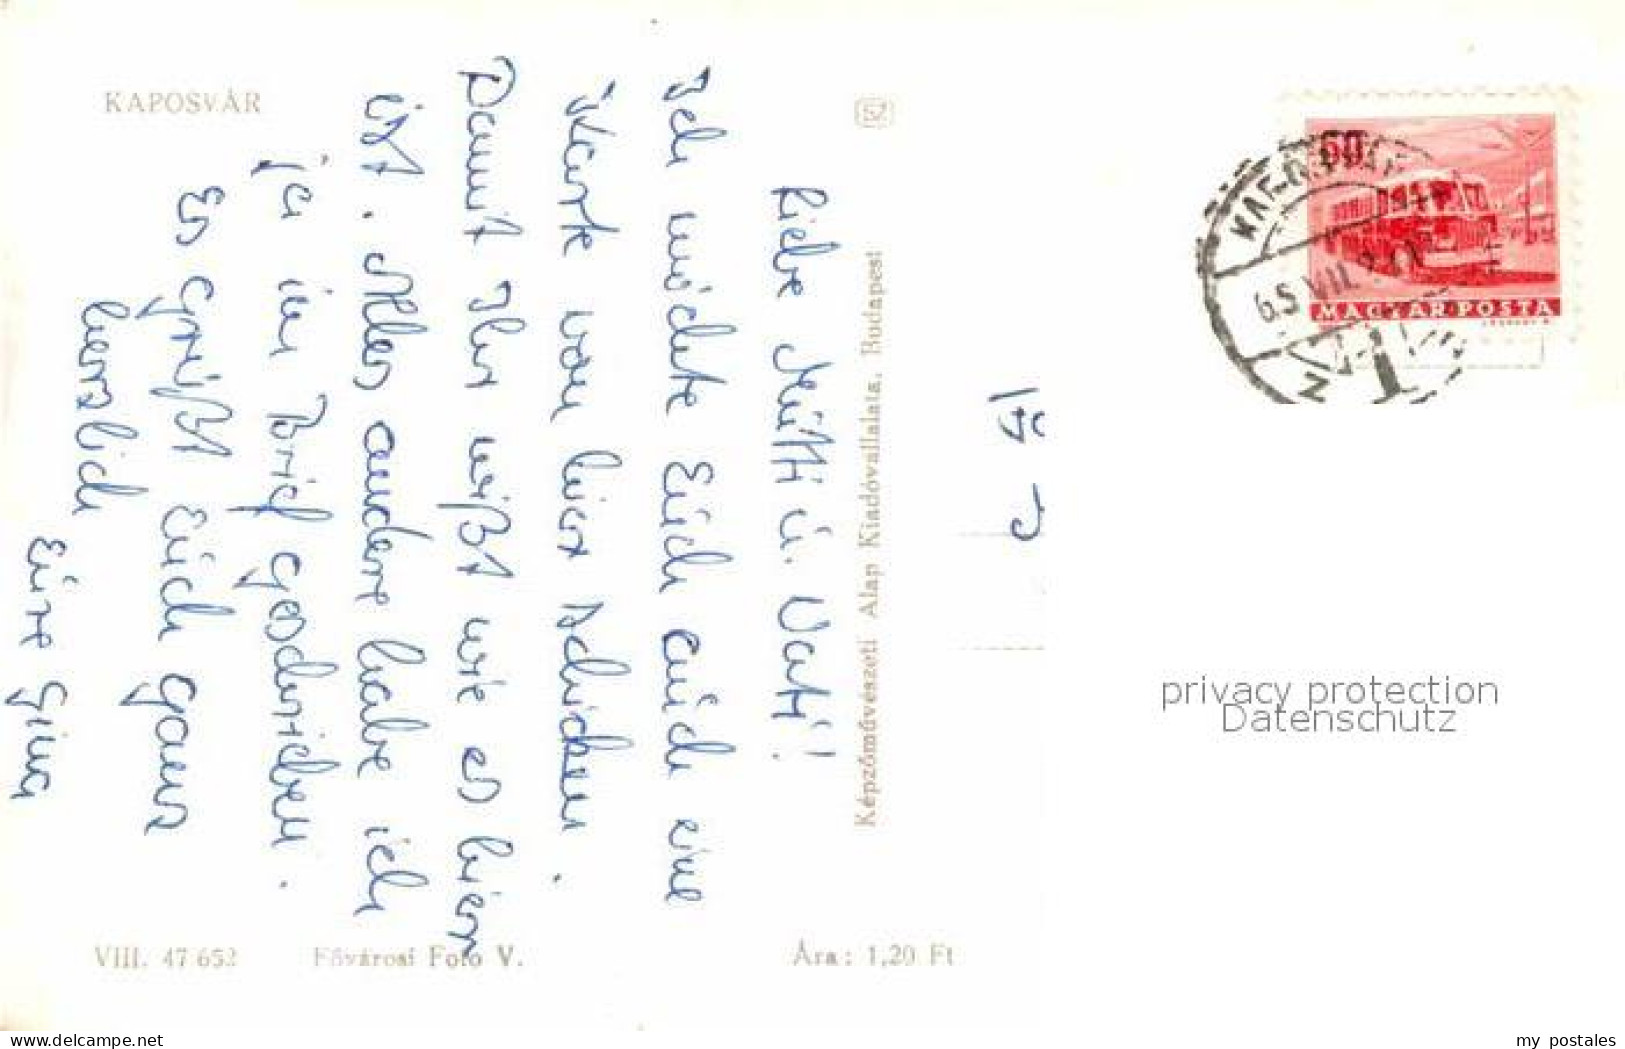 KAPOSVÁR
Liebe Mutti u. Vati!
Ich möchte Euch auch eine
Karte von hier schicken.
Damit Ihr wißt wie es hier
ist. Alles andere habe ich
ja im Brief geschrieben.
Es grüßt Euch ganz
herzlich
Eure Gina
Képzőművészeti Alap Kiadóvállalata, Budapest
VIII. 47 652
Fővárosi Fotó V.
Ára: 1,20 Ft
60
MAGYAR POSTA
65 VII.
privacy protection
Datenschutz
www.delcampe.net
my_postales